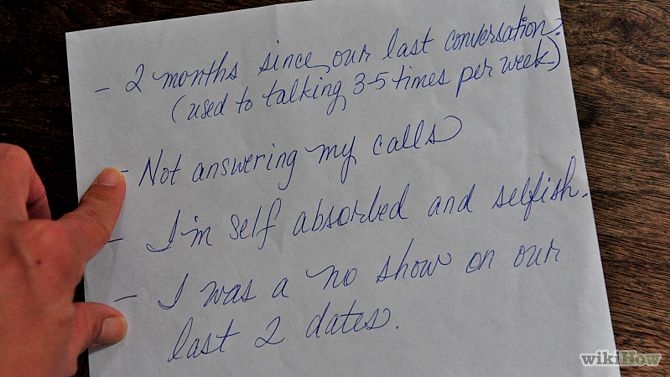 - 2 months since our last conversation.
(used to talking 3-5 times per week)
- Not answering my calls
- I'm self absorbed and selfish.
- I was a no show on our
last 2 dates.
wikiHow